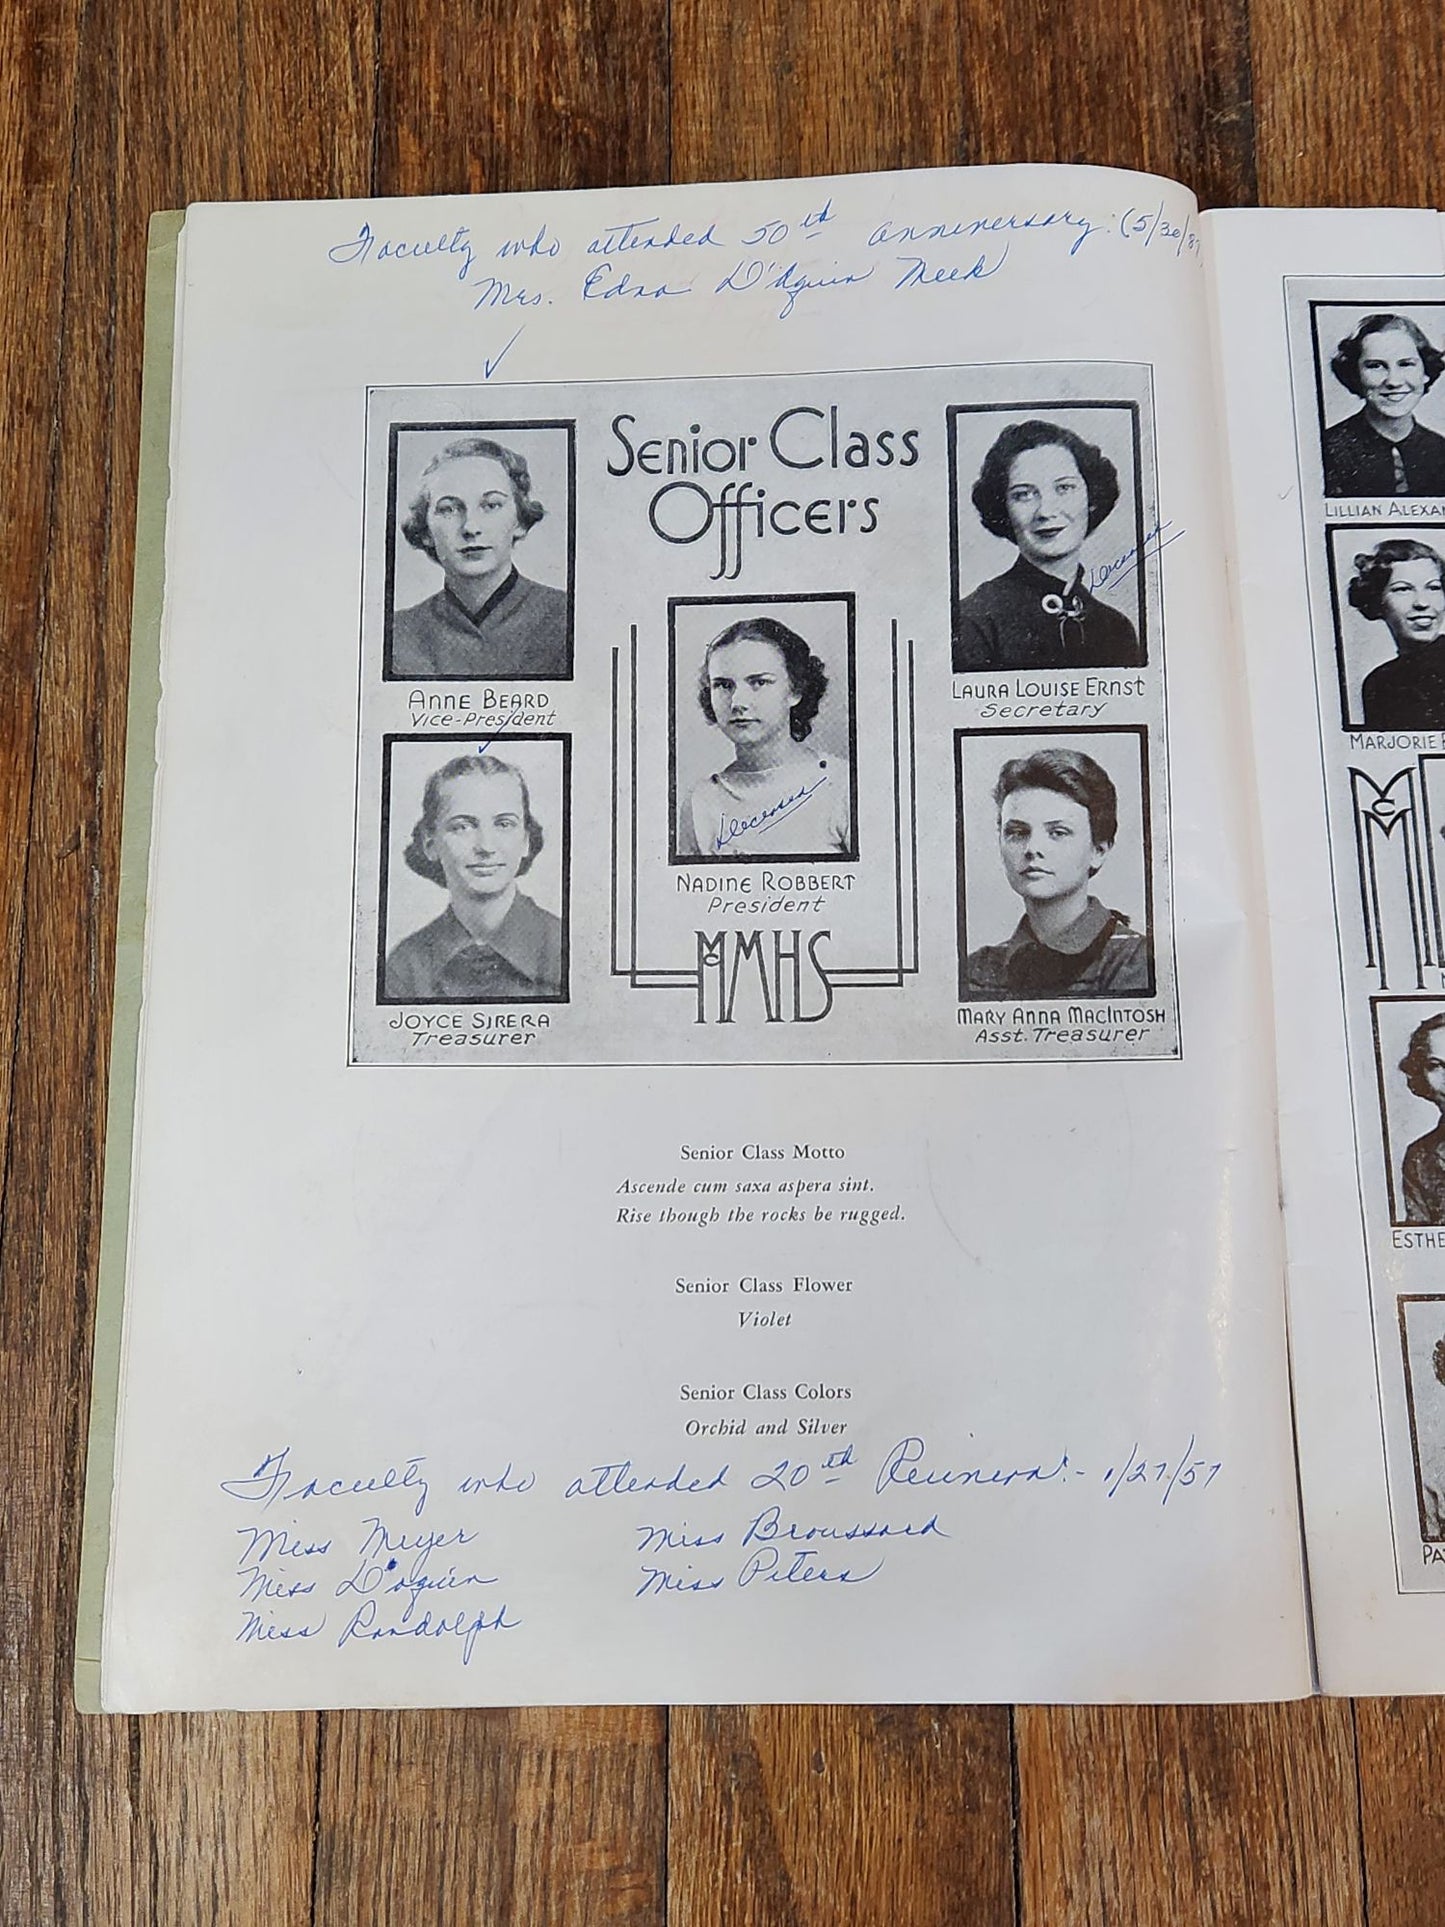 Faculty who attended 50th anniversary: (5/30/87)
Mrs. Edna D'Aquin Meek
Senior Class
Officers
Deceased
Anne Beard
Vice-President
Laura Louise Ernst
Secretary
Deceased
Nadine Robbert
President
McMHS
Joyce Sirera
Treasurer
Mary Anna MacIntosh
Asst. Treasurer
Senior Class Motto
Ascende cum saxa aspera sint.
Rise though the rocks be rugged.
Senior Class Flower
Violet
Senior Class Colors
Orchid and Silver
Faculty who attended 20th Reunion:- 1/27/57
Miss Meyer Miss Broussard
Miss D'aquin Miss Peters
Miss Randolph
Lillian Alexan
Marjorie
McM
Esthe
Pat